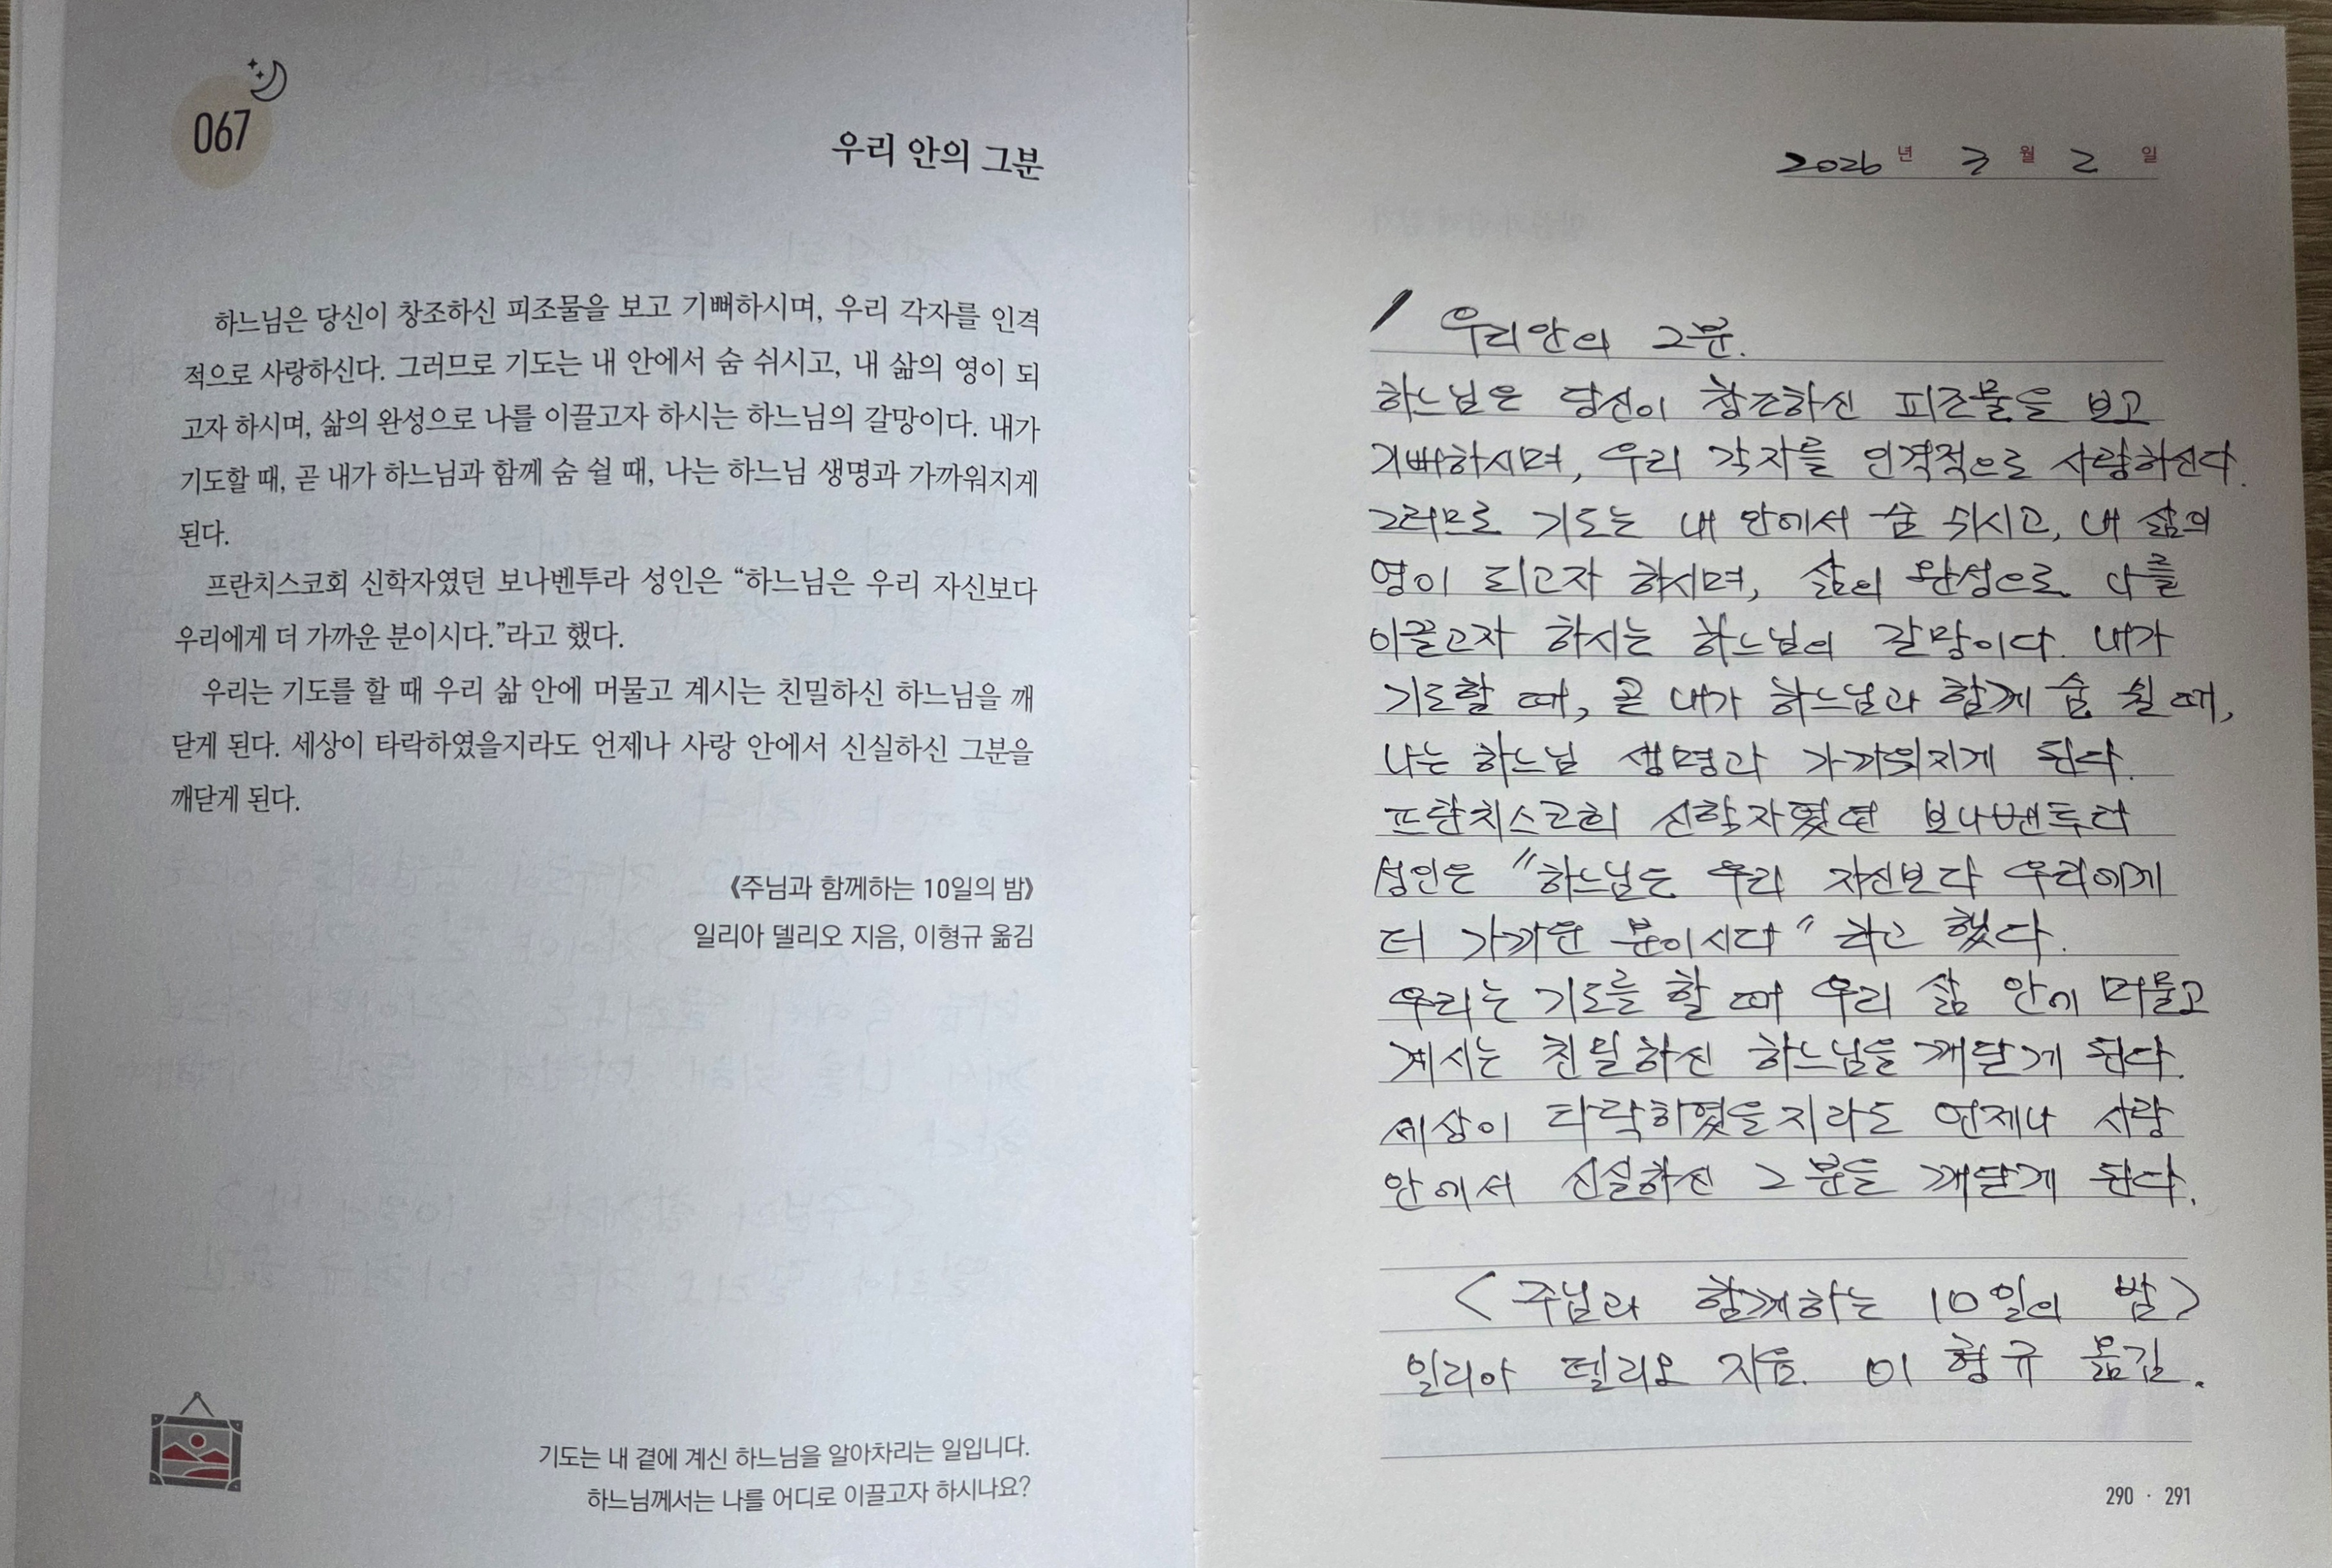 067
우리 안의 그분
하느님은 당신이 창조하신 피조물을 보고 기뻐하시며, 우리 각자를 인격
적으로 사랑하신다. 그러므로 기도는 내 안에서 숨 쉬시고, 내 삶의 영이 되
고자 하시며, 삶의 완성으로 나를 이끌고자 하시는 하느님의 갈망이다. 내가
기도할 때, 곧 내가 하느님과 함께 숨 쉴 때, 나는 하느님 생명과 가까워지게
된다.
프란치스코회 신학자였던 보나벤투라 성인은 “하느님은 우리 자신보다
우리에게 더 가까운 분이시다.”라고 했다.
우리는 기도를 할 때 우리 삶 안에 머물고 계시는 친밀하신 하느님을 깨
닫게 된다. 세상이 타락하였을지라도 언제나 사랑 안에서 신실하신 그분을
깨닫게 된다.
《주님과 함께하는 10일의 밤》
일리아 델리오 지음, 이형규 옮김
기도는 내 곁에 계신 하느님을 알아차리는 일입니다.
하느님께서는 나를 어디로 이끌고자 하시나요?
2026년 3월 2일
우리 안의 그분.
하느님은 당신이 창조하신 피조물을 보고
기뻐하시며, 우리 각자를 인격적으로 사랑하신다.
그러므로 기도는 내 안에서 숨 쉬시고, 내 삶의
영이 되고자 하시며, 삶의 완성으로 나를
이끌고자 하시는 하느님의 갈망이다. 내가
기도할 때, 곧 내가 하느님과 함께 숨 쉴 때,
나는 하느님 생명과 가까워지게 된다.
프란치스코회 신학자였던 보나벤투라
성인은 "하느님은 우리 자신보다 우리에게
더 가까운 분이시다" 라고 했다.
우리는 기도를 할 때 우리 삶 안에 머물고
계시는 친밀하신 하느님을 깨닫게 된다.
세상이 타락하였을지라도 언제나 사랑
안에서 신실하신 그분을 깨닫게 된다.
<주님과 함께하는 10일의 밤>
일리아 델리오 지음. 이형규 옮김.
290 · 291